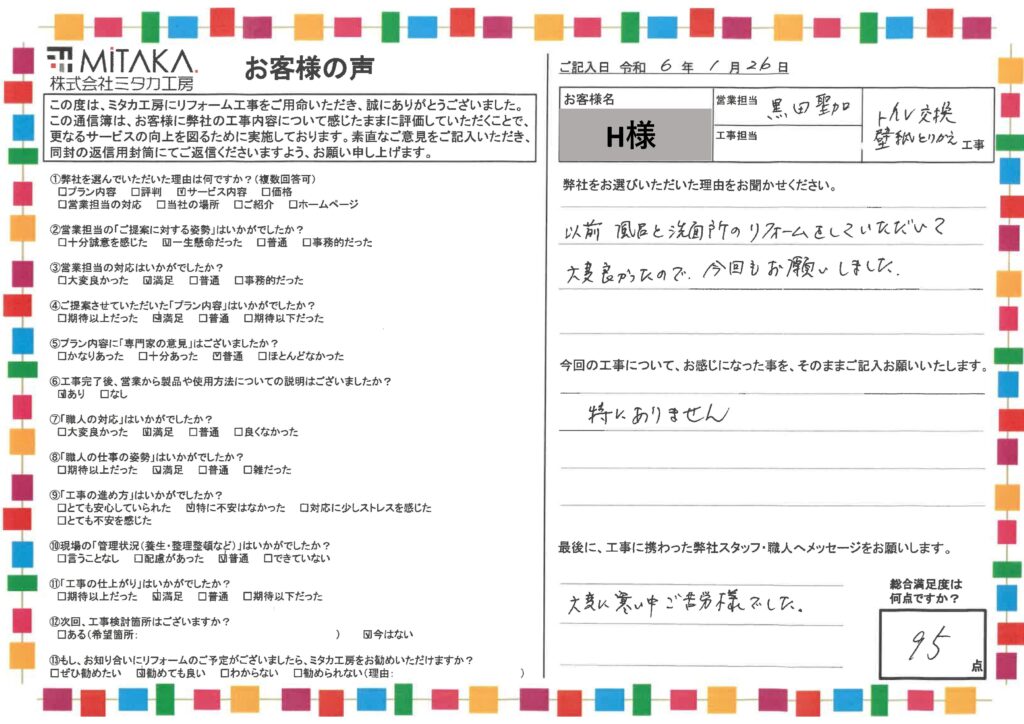 MiTAKA.
株式会社ミタカ工房
お客様の声
この度は、ミタカ工房にリフォーム工事をご用命いただき、誠にありがとうございました。
この通信簿は、お客様に弊社の工事内容について感じたままに評価していただくことで、
更なるサービスの向上を図るために実施しております。素直なご意見をご記入いただき、
同封の返信用封筒にてご返信くださいますよう、お願い申し上げます。
①弊社を選んでいただいた理由は何ですか？(複数回答可)
□プラン内容 □評判 ☑サービス内容 □価格
□営業担当の対応 □当社の場所 □ご紹介 □ホームページ
②営業担当の「ご提案に対する姿勢」はいかがでしたか？
□十分誠意を感じた ☑一生懸命だった □普通 □事務的だった
③営業担当の対応はいかがでしたか？
□大変良かった ☑満足 □普通 □事務的だった
④ご提案させていただいた「プラン内容」はいかがでしたか？
□期待以上だった ☑満足 □普通 □期待以下だった
⑤プラン内容に「専門家の意見」はございましたか？
□かなりあった □十分あった ☑普通 □ほとんどなかった
⑥工事完了後、営業から製品や使用方法についての説明はございましたか？
☑あり □なし
⑦「職人の対応」はいかがでしたか？
□大変良かった ☑満足 □普通 □良くなかった
⑧「職人の仕事の姿勢」はいかがでしたか？
□期待以上だった ☑満足 □普通 □雑だった
⑨「工事の進め方」はいかがでしたか？
□とても安心していられた ☑特に不安はなかった □対応に少しストレスを感じた
□とても不安を感じた
⑩現場の「管理状況(養生・整理整頓など)」はいかがでしたか？
□言うことなし □配慮があった ☑普通 □できていない
⑪「工事の仕上がり」はいかがでしたか？
□期待以上だった ☑満足 □普通 □期待以下だった
⑫次回、工事検討箇所はございますか？
□ある(希望箇所: ) ☑今はない
⑬もし、お知り合いにリフォームのご予定がございましたら、ミタカ工房をお勧めいただけますか？
□ぜひ勧めたい ☑勧めても良い □わからない □勧められない(理由: )
ご記入日 令和 6 年 1 月 26 日
お客様名
H様
営業担当 黒田聖加
工事担当
トイレ交換
壁紙とりかえ 工事
弊社をお選びいただいた理由をお聞かせください。
以前 風呂と洗面所のリフォームをしていただいて
大変良かったので、今回もお願いしました。
今回の工事について、お感じになった事を、そのままご記入お願いいたします。
特にありません
最後に、工事に携わった弊社スタッフ・職人へメッセージをお願いします。
大変に寒い中ご苦労様でした。
総合満足度は
何点ですか？
95
点